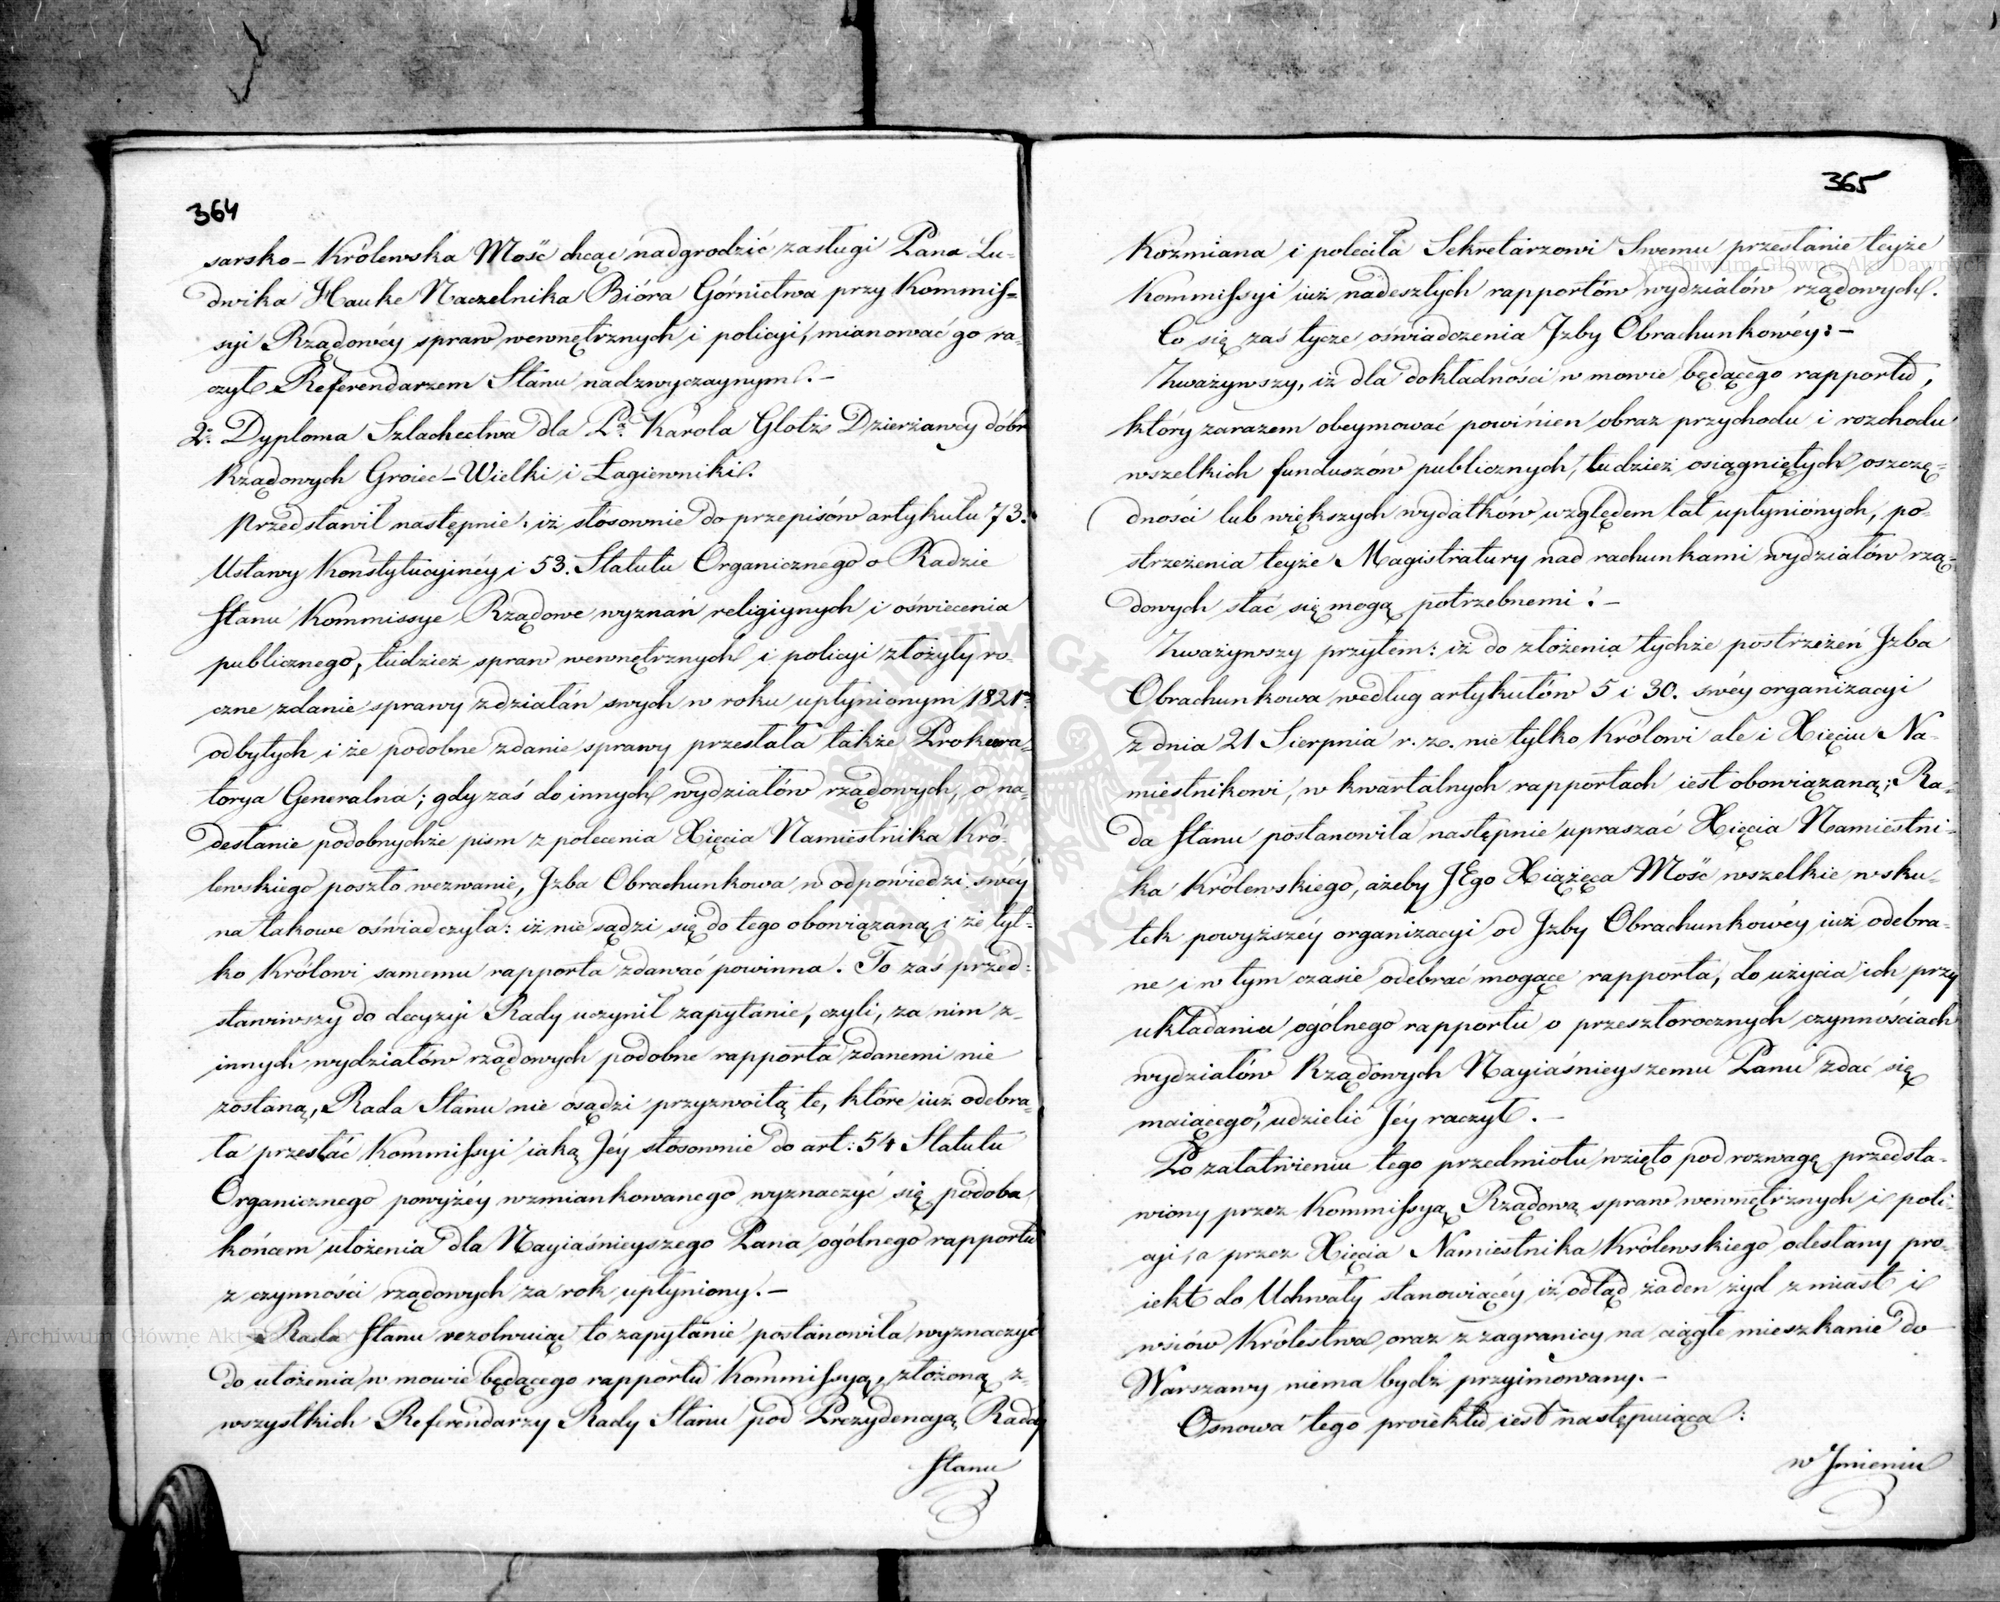 364
sarsko-Królewska Mość chcąc nadgrodzić zasługi Pana Lu-
dwika Hauke Naczelnika Bióra Górnictwa przy Kommis-
syi Rządowéy spraw wewnętrznych i policyi, mianować go ra-
czył Referendarzem Stanu nadzwyczaynym. -
2º Dyploma Szlachectwa dla Pa. Karola Glotz Dzierżawcy dóbr
Rządowych Groiec-Wielki i Łagiewniki.
Przedstawił następnie: iż stosownie do przepisów artykułu 73.
Ustawy Konstytucyinéy i 53. Statutu Organicznego o Radzie
Stanu Kommissye Rządowe wyznań religiynych i oświecenia
publicznego, tudzież spraw wewnętrznych i policyi złożyły ro-
czne zdanie sprawy z działań swych w roku upłynionym 1821m
odbytych i że podobne zdanie sprawy przesłała także Prokura-
torya Generalna; gdy zaś do innych wydziałów rządowych, o na-
desłanie podobnychże pism z polecenia Xięcia Namiestnika Kró-
lewskiego poszło wezwanie, Jzba Obrachunkowa w odpowiedzi swéy
na takowe oświadczyła: iż nie sądzi się do tego obowiązaną i że tyl-
ko Królowi samemu rapporta zdawać powinna. To zaś przed-
stawiwszy do decyzyi Rady uczynił zapytanie, czyli, za nim z-
innych wydziałów rządowych podobne rapporta zdanemi nie
zostaną, Rada Stanu nie osądzi przyzwoitą te, które iuż odebra-
ła przesłać Kommissyi iaką Jéy stosownie do art: 54 Statutu
Organicznego powyżéy wzmiankowanego wyznaczyć się podoba
końcem ułożenia dla Nayiaśnieyszego Pana ogólnego rapportu
z czynności rządowych za rok upłyniony. -
Rada Stanu rezolwuiąc to zapytanie postanowiła wyznaczyć
do ułożenia w mowie będącego rapportu Kommissyą, złożoną z-
wszystkich Referendarzy Rady Stanu pod Prezydencyą Radcy
Stanu
365
Koźmiana i poleciła Sekretarzowi Swemu przesłanie teyże
Kommissyi iuż nadeszłych rapportów wydziałów rządowych.
Co się zaś tycze oświadczenia Jzby Obrachunkowéy: -
Zważywszy, iż dla dokładności w mowie będącego rapportu,
który zarazem obeymować powinien obraz przychodu i rozchodu
wszelkich funduszów publicznych, tudzież osiągniętych oszczę-
dności lub większych wydatków względem lat upłynionych, po-
strzeżenia teyże Magistratury nad rachunkami wydziałów rzą-
dowych stać się mogą potrzebnemi: -
Zważywszy przytem: iż do złożenia tychże postrzeżeń Jzba
Obrachunkowa według artykułów 5 i 30. swéy organizacyi
z dnia 21 Sierpnia r. z. nie tylko Królowi ale i Xięciu Na-
miestnikowi, w kwartalnych rapportach iest obowiązaną; Ra-
da Stanu postanowiła następnie upraszać Xięcia Namiestni-
ka Królewskiego, ażeby JEgo Xiążęca Mość wszelkie w sku-
tek powyższéy organizacyi od Jzby Obrachunkowéy iuż odebra-
ne i w tym czasie odebrać mogące rapporta, do użycia ich przy
układaniu ogólnego rapportu o przeszłorocznych czynnościach
wydziałów Rządowych Nayiaśnieyszemu Panu zdać się
maiącego, udzielić Jéy raczył. -
Po załatwieniu tego przedmiotu wzięto pod rozwagę przedsta-
wiony przez Kommissyą Rządową spraw wewnętrznych i poli-
cyi, a przez Xięcia Namiestnika Królewskiego odesłany pro-
iekt do Uchwały stanowiącéy iż odtąd żaden żyd z miast i
wsiów Królestwa oraz z zagranicy na ciągłe mieszkanie do
Warszawy niema bydź przyimowany. -
Osnowa tego proiektu iest następuiąca:
w Jmieniu
Archiwum Główne Akt Dawnych
Archiwum Główne Akt Dawnych